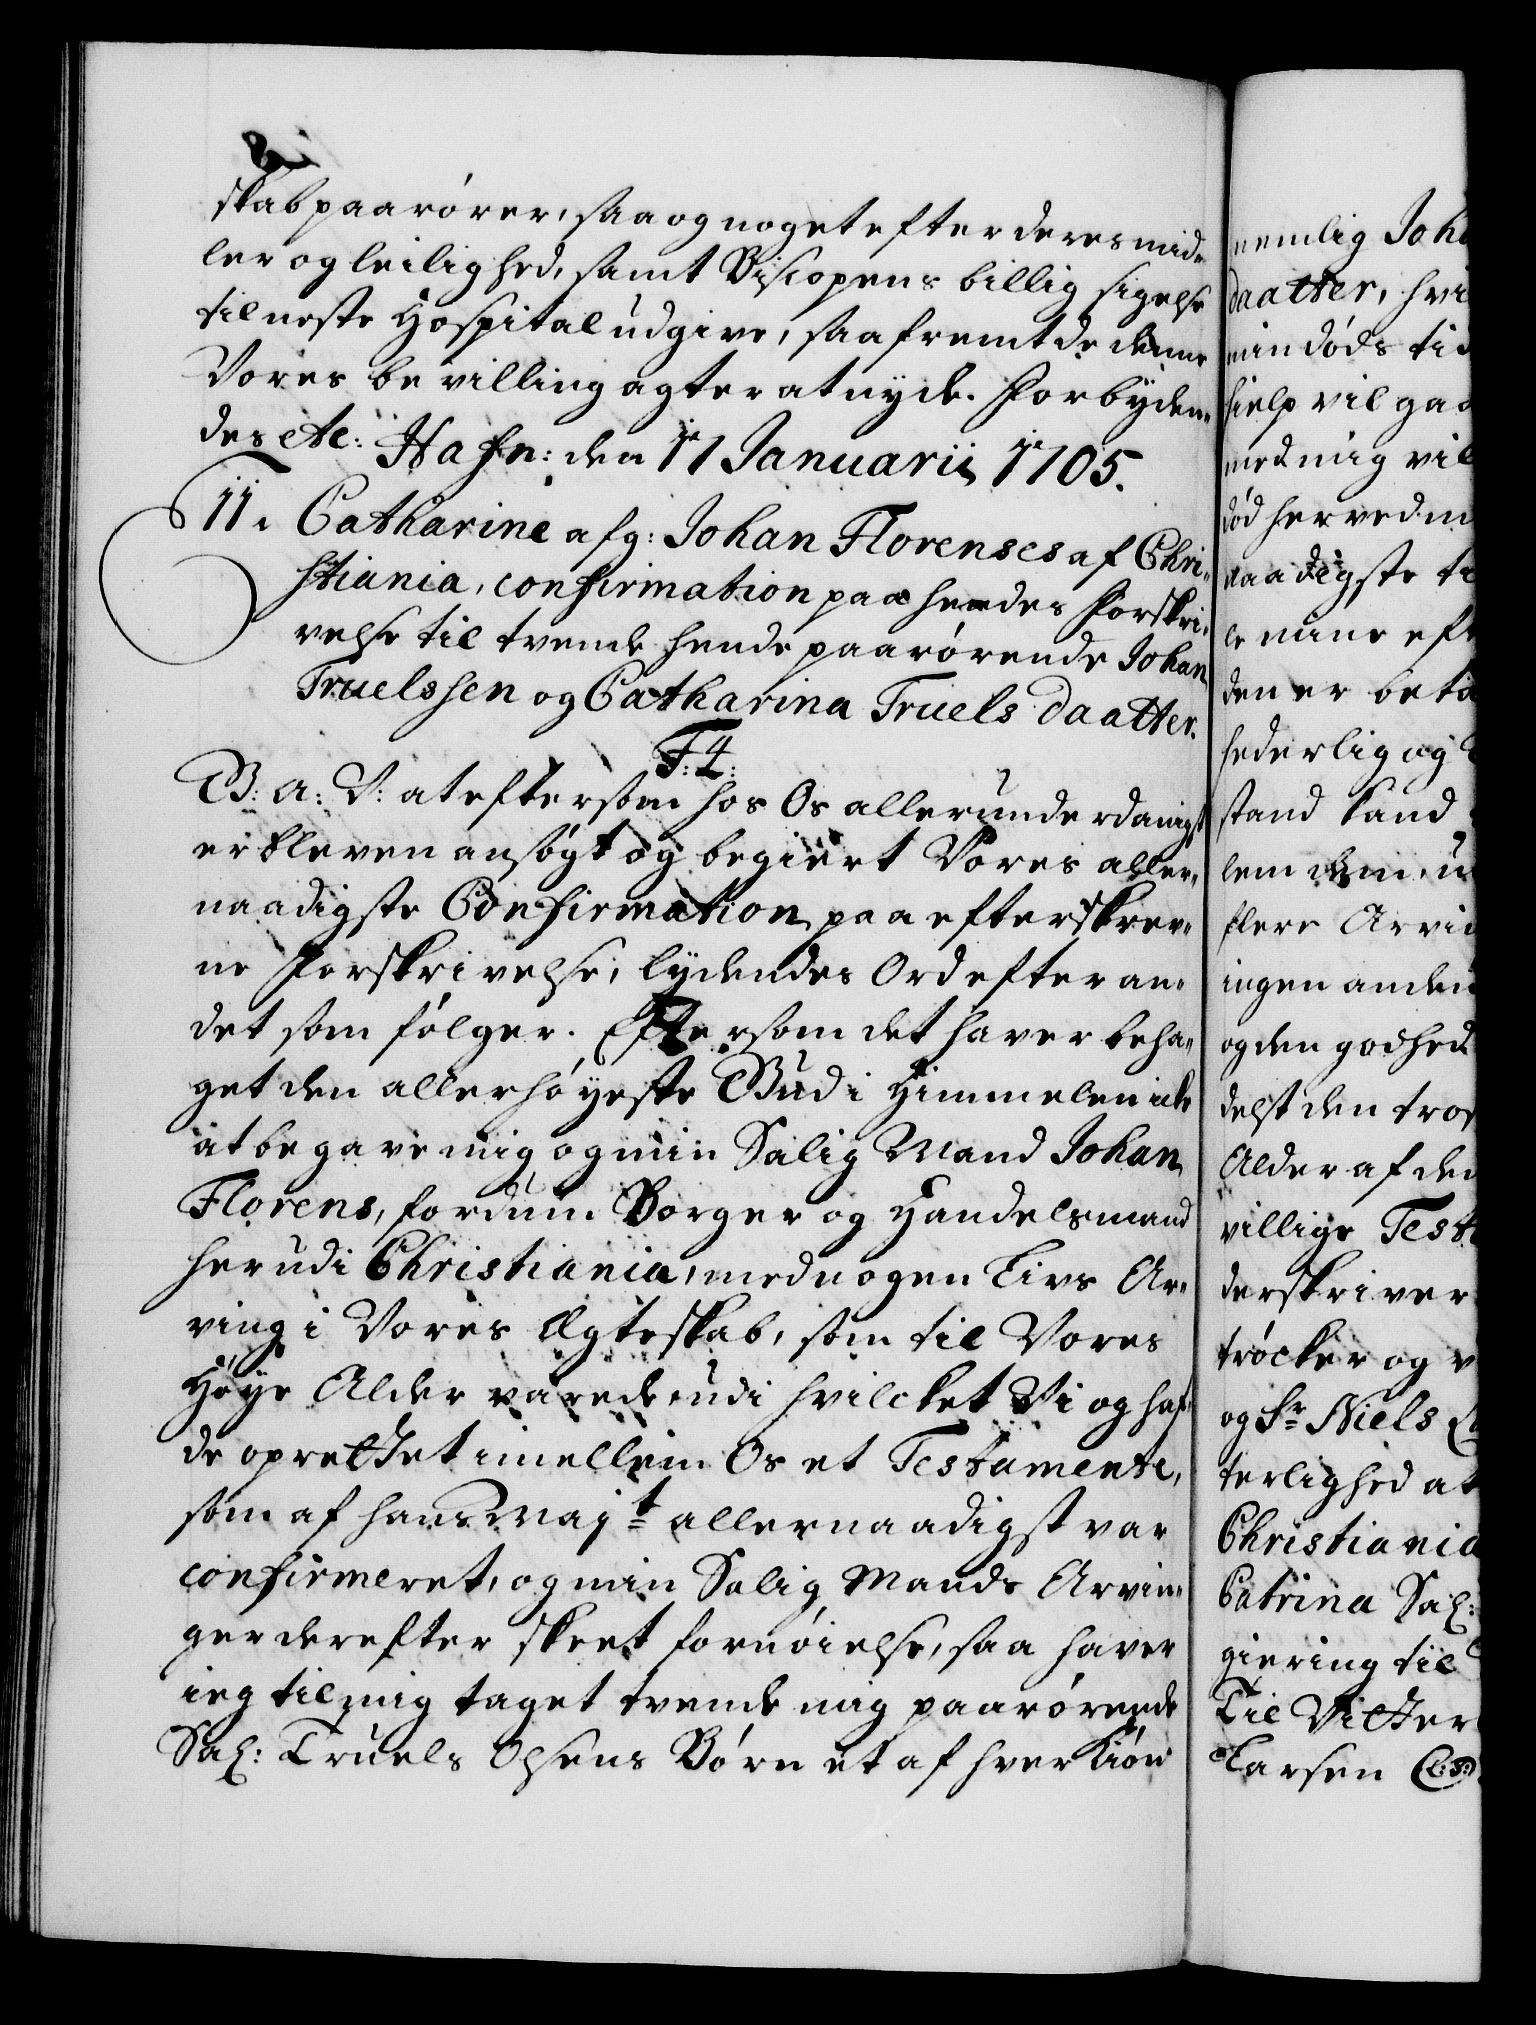 skab paarører, saa og noget efter deres mid-
ler og leilighed, samt Biscopens billig sigelse
til neste Hospital udgive, saafremt de denne
Vores bevilling agter at nyde. Forbyden-
des etc: Hafn: den 17 Januarii 1705.
11. Catharine afg: Johan Florenses af Chri-
stiania, confirmation paa hendes Forskri-
velse til tvende hende paarørende Johan
Truelssen og Catharina Truels daatter.
F: 4:
G: A: V: at eftersom hos Os allerunderdanigst
er bleven ansøgt og begiert Vores aller-
naadigste Confirmation paa efterskrev-
ne Forskrivelse, lydendes Ord efter an-
det som følger. Eftersom det haver beha-
get den allerhøyeste Gud i Himmelen icke
at begave mig og min Salig Mand Johan
Florens, fordum Borger og Handelsmand
her udi Christiania, med nogen Livs Ar-
ving i Vores Ægteskab, som til Vores
Høye Alder varede, udi hvilcket Vi og haf-
de oprettet imellem Os et Testamente,
som af hans Majt allernaadigst var
confirmeret, og min Salig Mands Arvin-
ger derefter skeet fornøielse, saa haver
ieg til mig taget tvende mig paarørende
Sal: Truels Olsens Børn et af hver Kiøn
nemlig Joha
daatter, hvi
min døds tid
hielp vil gaa
med mig vil
død herved m
naadigste ti
le mine eft
den er beta
hederlig og
stand kand
lem dem, u
flere Arvin
ingen anden
og den godhed
delst den tros
Alder af den
villige Test
derskriver
trøcker og v
og Sr Niels
terlighed at
Christiania
Catrina Sal:
giering til
Til Vitter
Larsen (L:S:)